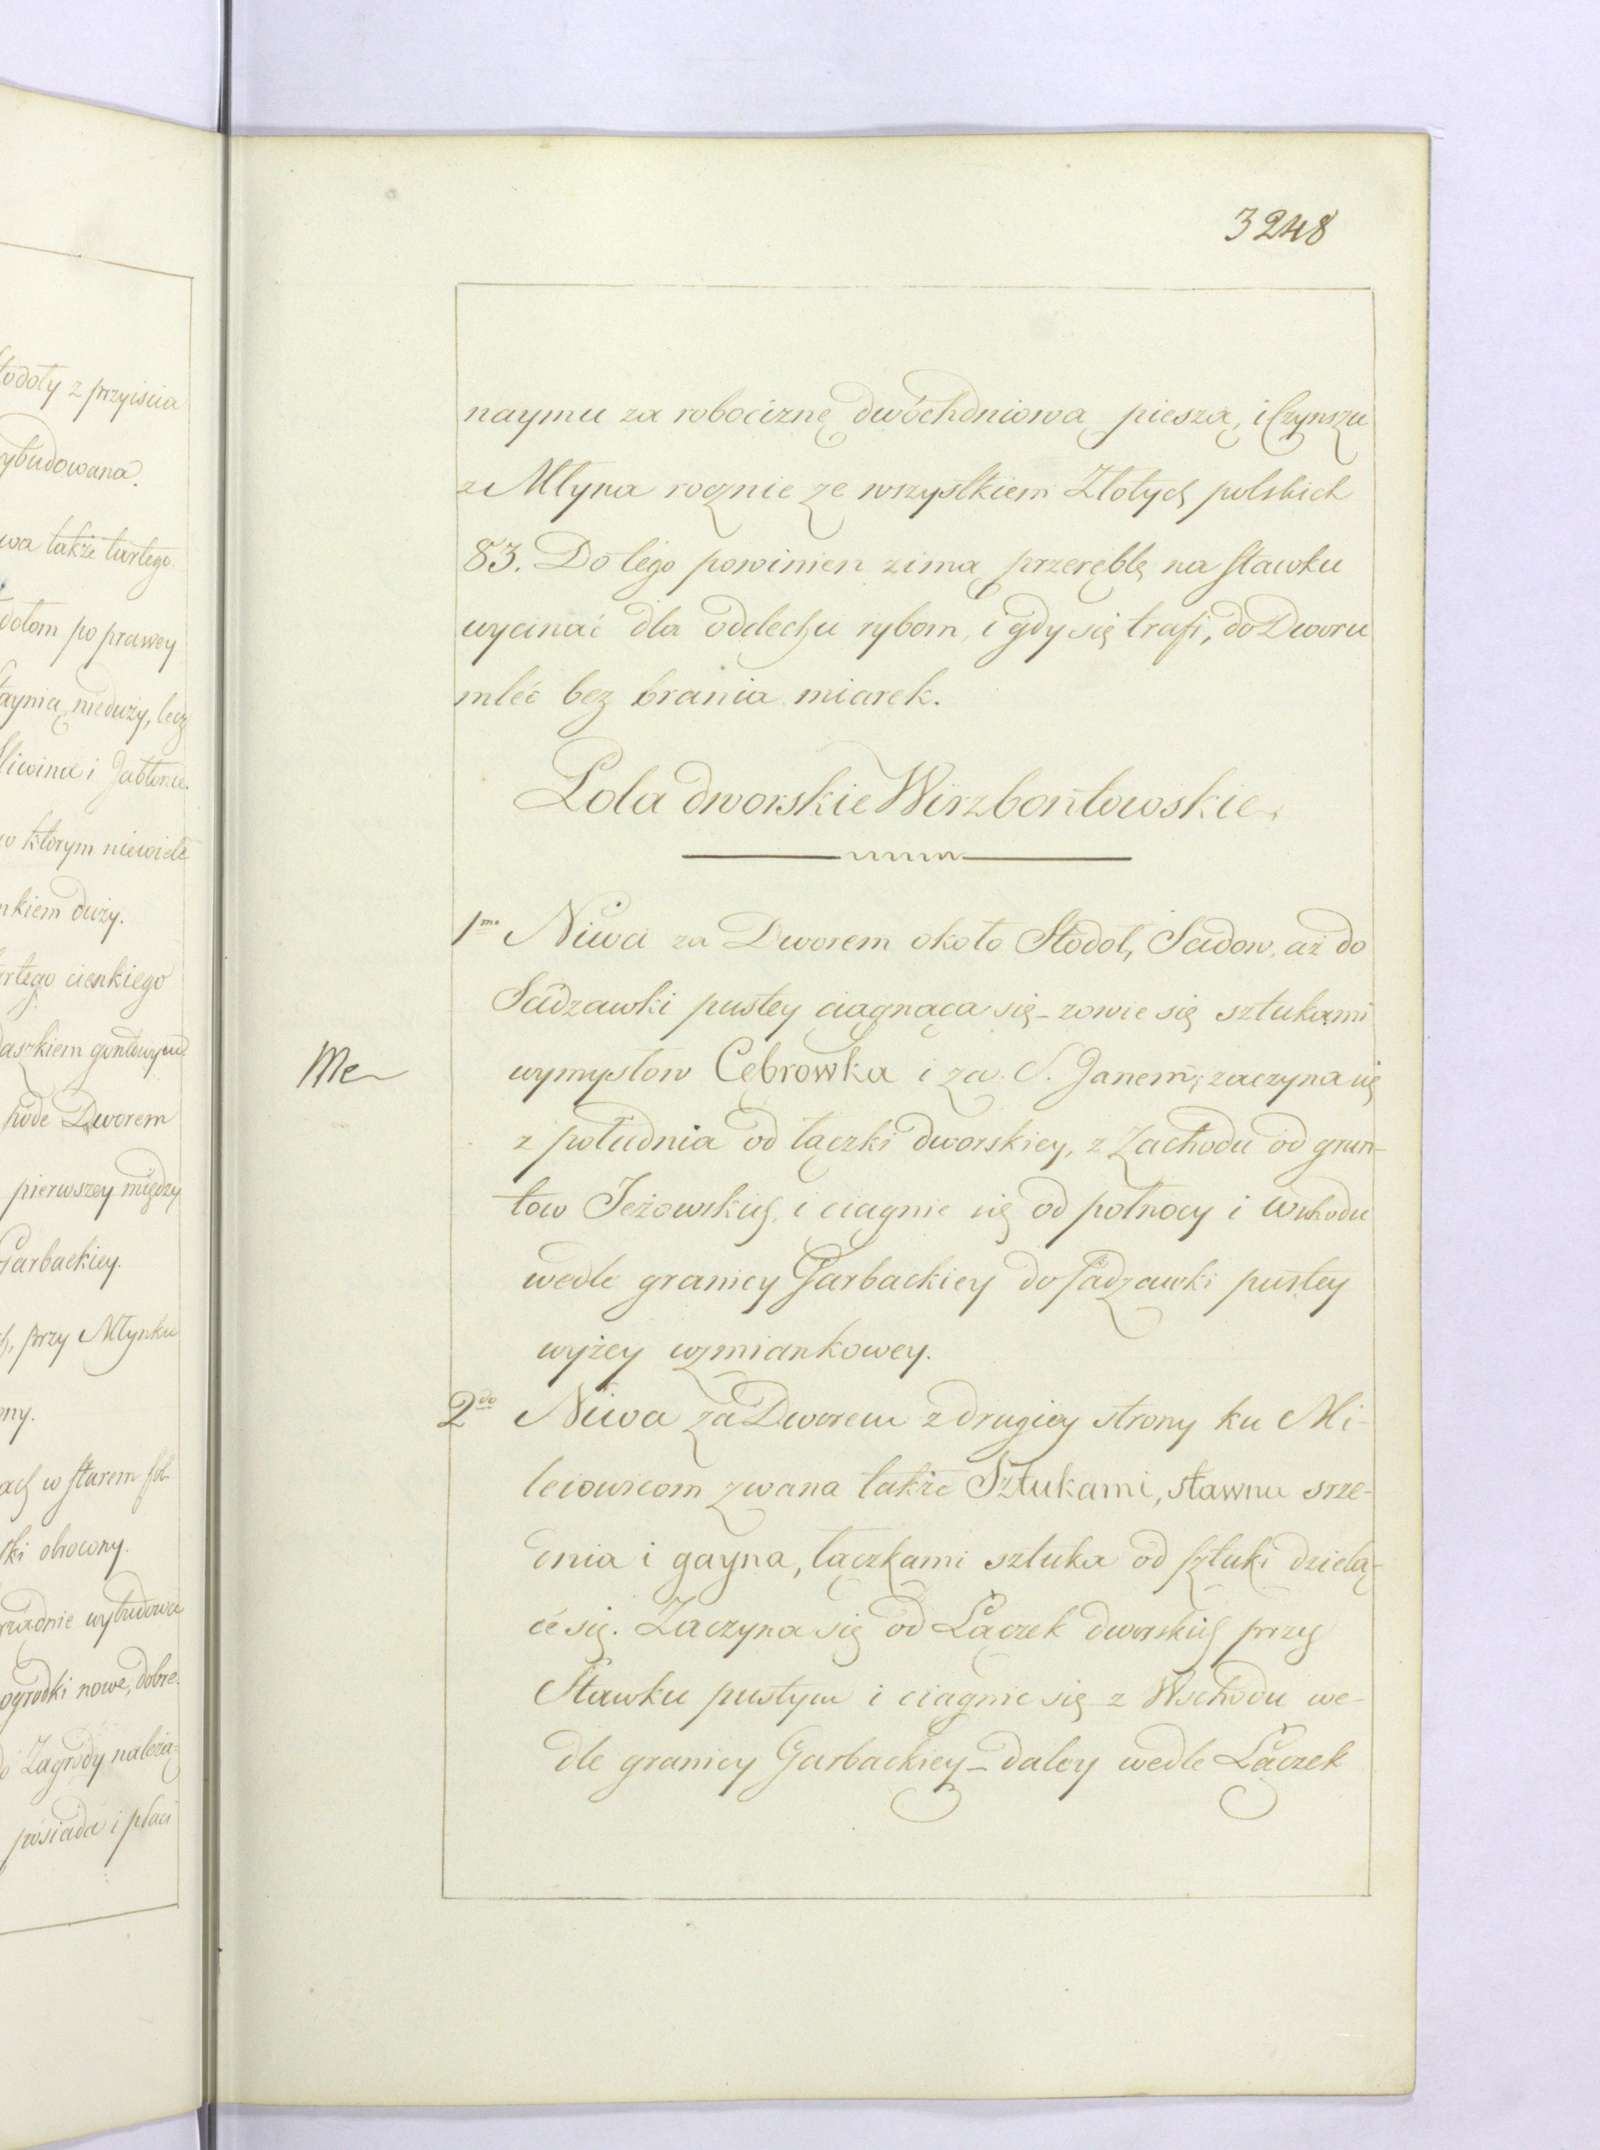 todoły z przyiscia
ybudowana.
wa także tartego
dotom po prawey
aymą nieduży, lecz
liwina i Jabłonie.
w ktorym niewiele
nkiem duży.
artego cienkiego
daszkiem gontowym
hode Dworem
pierwszey między
Garbackiey.
przy Młynku
ony.
ach w starem
ki obrocony.
wybudowa
ogrodki nowe, dobre.
Zagrody należą-
posiada i płaci
3248
naymu za robociznę dwóchdniową pieszą, i Czynszu
z Młyna rocznie ze wszystkiem Złotych polskich
83. Do tégo powinien zimą przeręblę na stawku
wycinać dla oddechu rybom, i gdy się trafi, do Dworu
mléć bez brania miarek.
Pola dworskie Wirzbontowskie.
1mo Niwa za Dworem około Stodoł, Sadow, aż do
Sadzawki pustey ciągnąca się - zowie się sztukami
Me
wymysłow Cebrowka i za S. Janem; zaczyna się
z południa od łączki dworskiey, z Zachodu od grun-
tow Jeżowskich, i ciągnie się od połnocy i Wschodu
wedle granicy Garbackiey do sadzawki pustey
wyżey wzmiankowey.
2do Niwa za Dworem z drugiey strony ku Mi-
leiowicom zwana także Sztukami, stawna srze-
dnia i gayna, łączkami sztuka od sztuki dzielą-
cé się. Zaczyna się od Łączek dworskich przy
Stawku pustym i ciągnie się z Wschodu we-
dle granicy Garbackiey - daley wedle Łączek